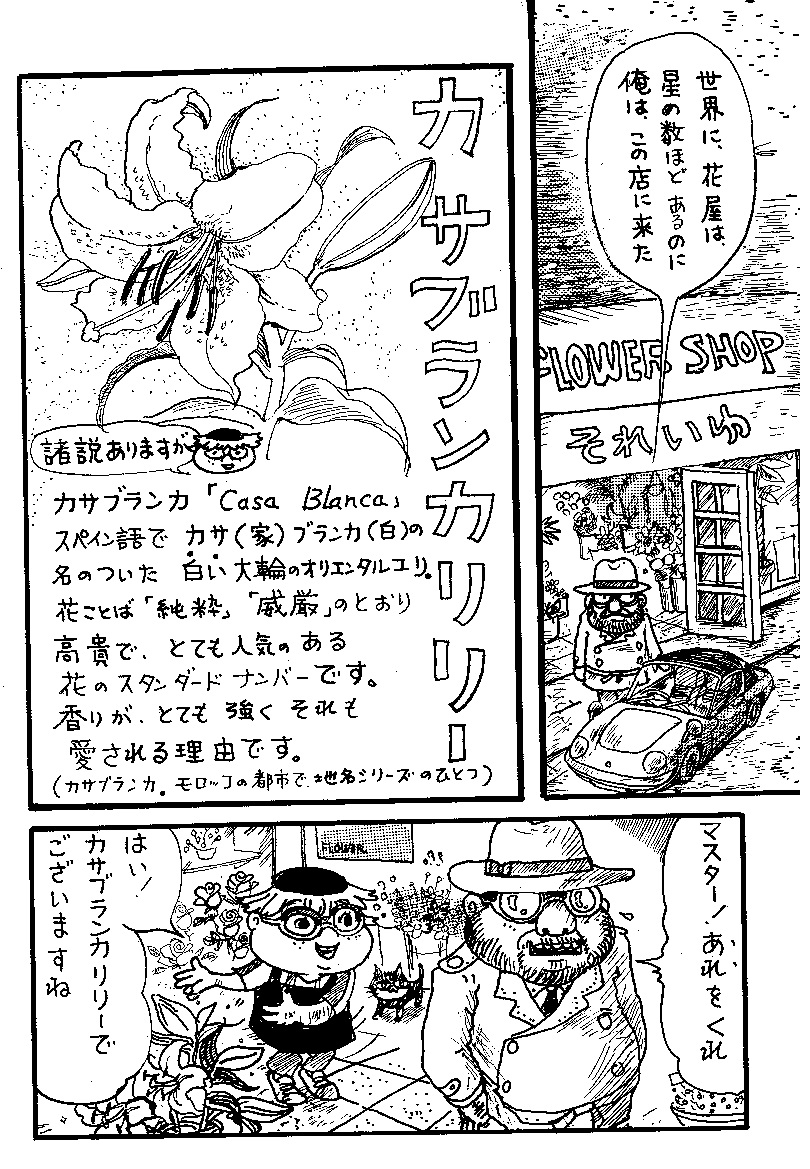 世界に、花屋は、
星の数ほどあるのに
俺は、この店に来た
FLOWER SHOP
それいゆ
カサブランカリリー
諸説ありますが
カサブランカ「Casa Blanca」
スペイン語で カサ(家)ブランカ(白)の
名のついた 白い大輪のオリエンタルユリ。
花ことば「純粋」「威厳」のとおり
高貴で、とても人気のある
花のスタンダードナンバーです。
香りが、とても強く それも
愛される理由です。
(カサブランカ。モロッコの都市で、地名シリーズのひとつ)
マスター!あれをくれ
FLOWER
はい!
カサブランカリリーで
ございますね